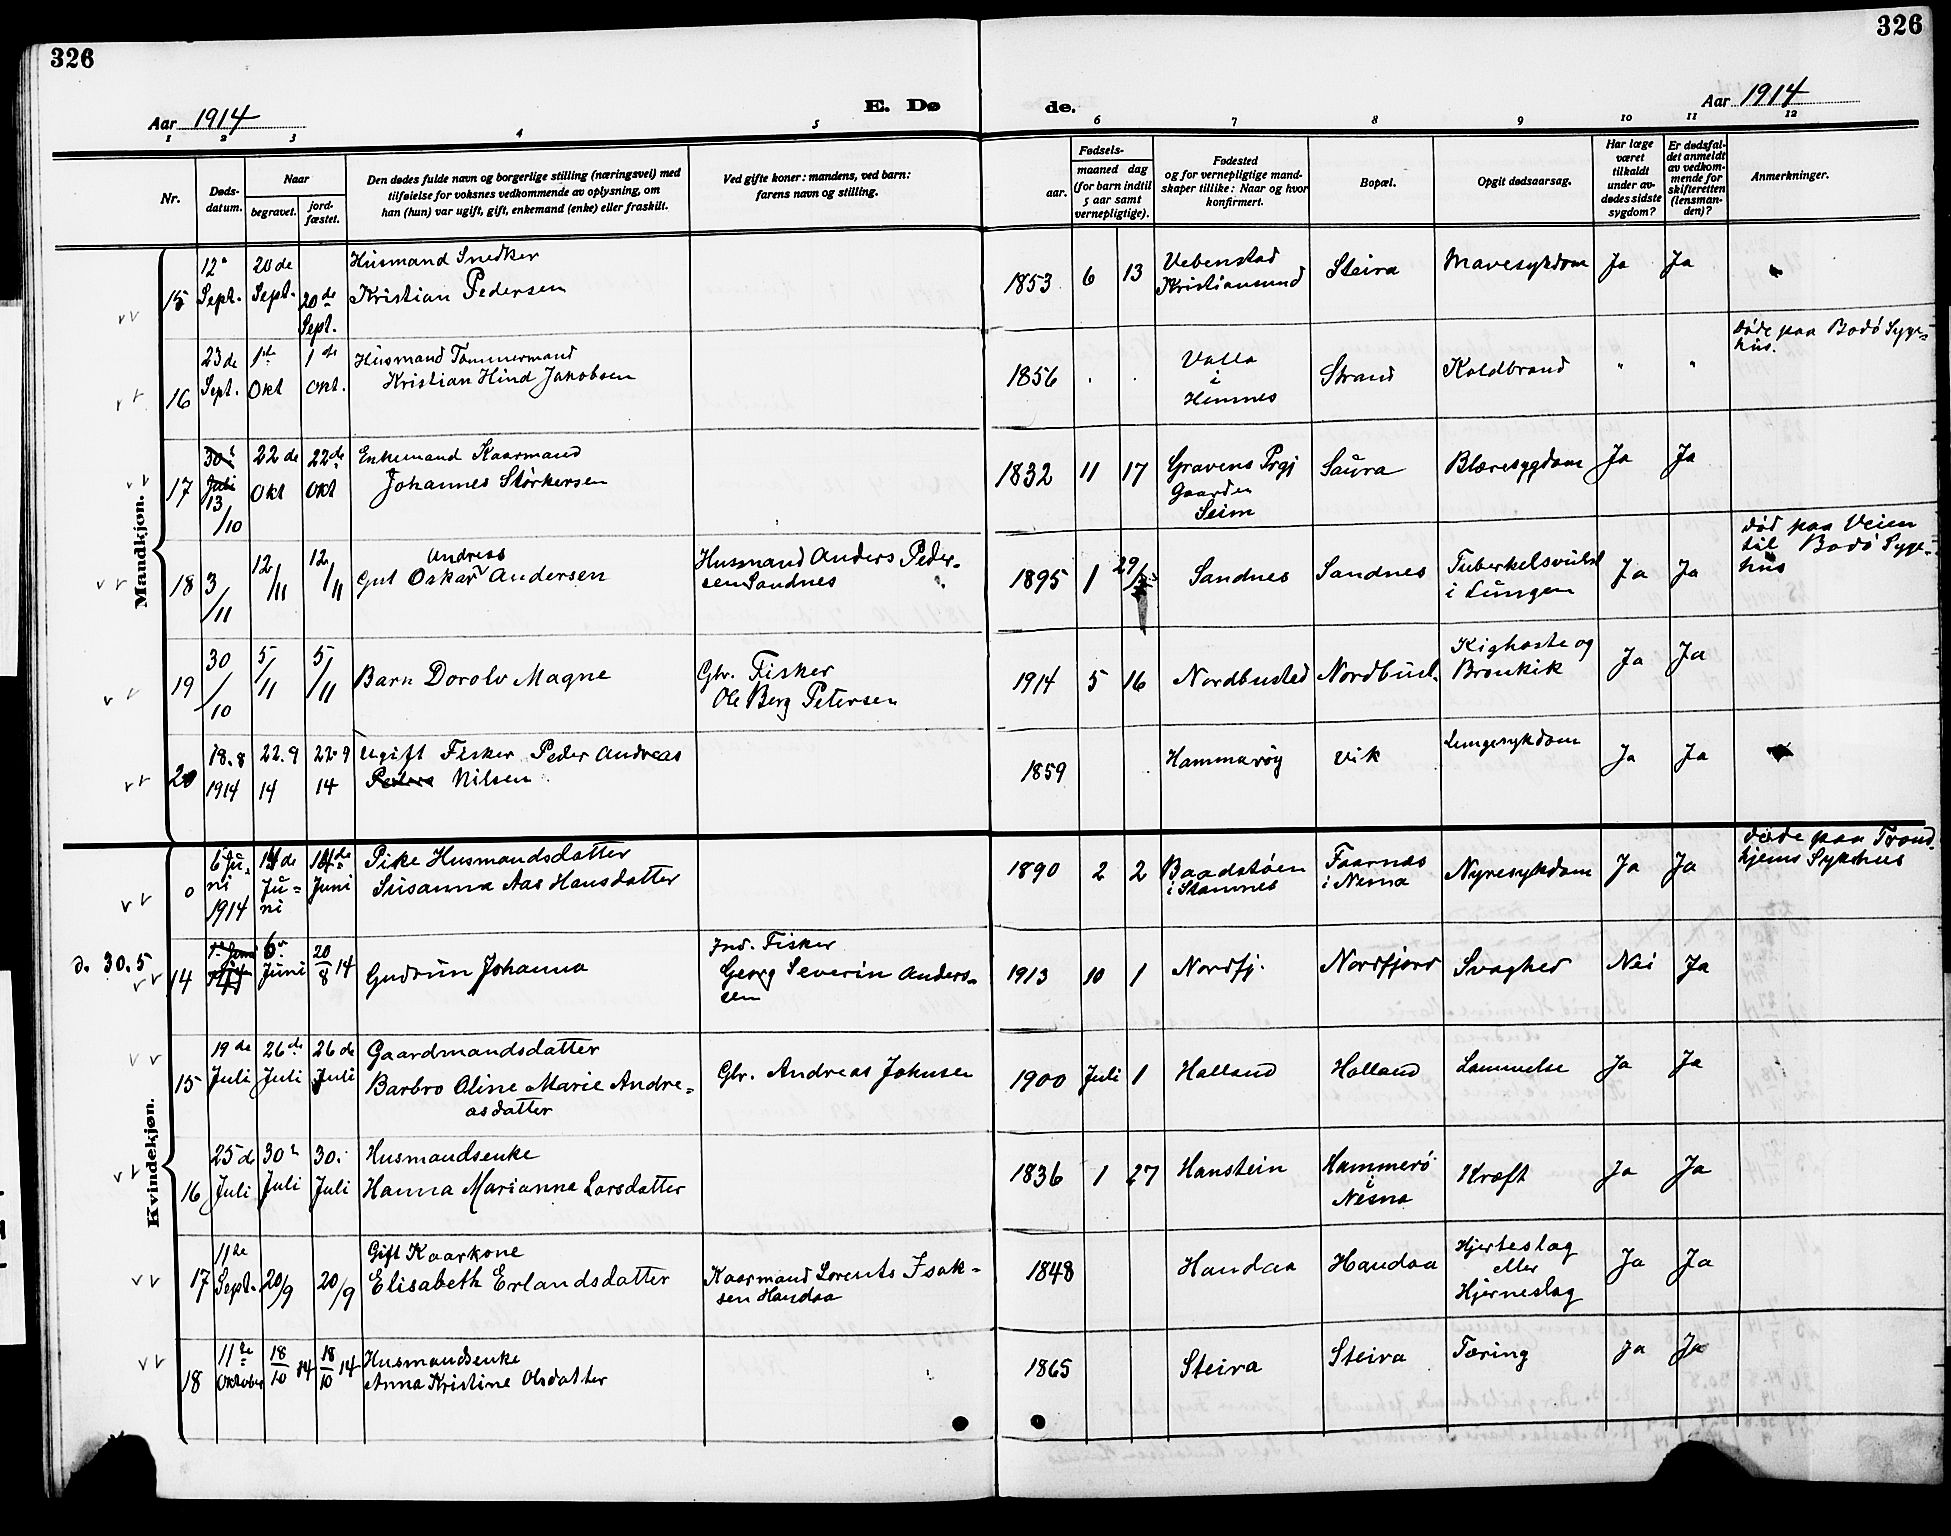 326
326
Aar 1914
E. Dø
de.
Aar 1914
1 2 3 4 5 6 7 8 9 10 11 12
Nr.
Døds-
datum.
Naar
begravet.
jord-
fæstet.
Den dødes fulde navn og borgerlige stilling (næringsvei) med
tilføielse for voksnes vedkommende av oplysning, om
han (hun) var ugift, gift, enkemand (enke) eller fraskilt.
Ved gifte koner: mandens, ved barn:
farens navn og stilling.
Fødsels-
aar.
maaned dag
(for barn indtil
5 aar samt
vernepligtige).
Fødested
og for vernepligtige mand-
skaper tillike: Naar og hvor
konfirmert.
Bopæl.
Opgit dødsaarsag.
Har læge
været
tilkaldt
under av-
dødes sidste
sygdom?
Er dødsfal-
det anmeldt
av vedkom-
mende for
skifteretten
(lensman-
den)?
Anmerkninger.
Mandkjøn.
15
12
Sept.
20 de
Sept.
20 de
Sept.
Husmand Snedker
Kristian Pedersen
1853 6 13
Vebenstad
Kristiansund
Steira
Mavesykdom
Ja
Ja
16
23 de
Sept.
1 de
Okt
1 de
Okt.
Husmand Tømmermand
Kristian Hind Jakobsen
1856 . .
Valla
i
Hemnes
Strand
Koldbrand
"
"
Døde paa Bodø Syge-
hus.
17
30
Juli
13
/10
22 de
Okt
22 de
Okt
Enkemand Kaarmand
Johannes Størkersen
1832 11 17
Gravens Prgj
Gaarden
Seim
Saura
Blæresygdom
Ja
Ja
18
3
/11
12
/11
12
/11
Andreas
Gut Oskar Andersen
Husmand Anders Peder-
sen Sandnes
1895 1 29
Sandnes
Sandnes
Tuberkelsvulst
i Lungen
Ja
Ja
død paa Veien
til Bodø Syge-
hus
19
30
/10
5
/11
5
/11
Barn Dorolv Magne
Gbr. Fisker
Ole Berg Petersen
1914 5 16
Nordbusted
Nordbust.
Kighoste og
Bronkik
Ja
Ja
20
18.8
1914
22.9
14
22.9
14
Ugift Fisker Peder Andreas
Peders Nilsen
1859
Hammarøy
Vik
Lungesykdom
Ja
Ja
Kvindekjøn.
0
6 Ju-
ni
1914
14 de
Ju-
ni
14 de
Juni
Pike Husmandsdatter
Susanna Aas Hansdatter
1890 2 2
Baadstøen
i Stamnes
Faarnes
i Nesna
Nyresykdom
Ja
Ja
døde paa Trond-
hjems Sykehus
d. 30.5
14
1. Juni
6
Juni
20
8 14
Gudrun Johanna
Ind. Fisker
Georg Severin Anders-
sen
1913 10 1
Nordfj.
Nordfjord
Svaghed
Nei
Ja
15
19 de
Juli
26 de
Juli
26 de
Juli
Gaardmandsdatter
Barbro Oline Marie Andre-
asdatter
Gbr. Andreas Johnsen
1900 Juli 1
Halland
Holland
Lammelse
Ja
Ja
16
25 d
Juli
30
Juli
30
Juli
Husmandsenke
Hanna Marianna Larsdatter
1836 1 27
Hanstein
Hammerö
i
Nesna
Kræft
Ja
Ja
17
11 te
Sept.
20/9
20/9
Gift Kaarkone
Elisabeth Erlandsdatter
Kaarmand Lorents Isak-
sen Handaa
1848
Handaa
Handaa
Hjerteslag
eller
Hjerneslag
Ja
Ja
18
11 te
Oktober
18
10 14
18
10 14
Husmandsenke
Anna Kristine Olsdatter
1865
Steira
Steira
Tæring
Ja
Ja